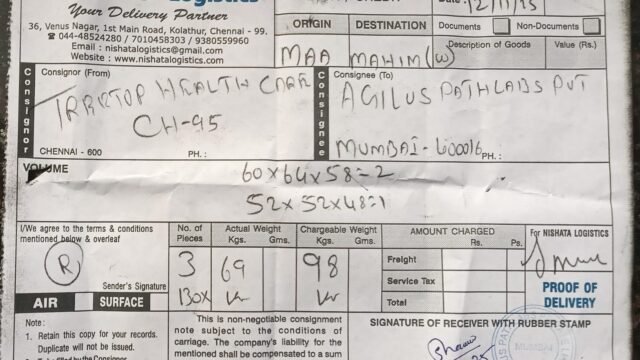 Your Delivery Partner
36, Venus Nagar, 1st Main Road, Kolathur, Chennai - 99.
044-48524280 / 7010458303 / 9380559960
Email : nishatalogistics@gmail.com
Website : www.nishatalogistics.com
12/11/25
ORIGIN DESTINATION Documents Non-Documents
MAA MAHIM (W) Description of Goods Value (Rs.)
Consignor Consignor (From) Consignee Consignee (To)
HEALTH CARE AGILUS PATHLABS PVT
CH-95
MUMBAI - 400016
CHENNAI - 600 PH. : PH. :
VOLUME 60 x 64 x 58 = 2
52 x 52 x 48 = 1
I/We agree to the terms & conditions mentioned below & overleaf
No. of Pieces Actual Weight Kgs. Gms. Chargeable Weight Kgs. Gms. AMOUNT CHARGED Rs. Ps. For NISHATA LOGISTICS
R 3 69 98 Freight
Sender's Signature BOX Service Tax PROOF OF DELIVERY
AIR SURFACE Total
Note :
1. Retain this copy for your records. Duplicate will not be issued.
This is non-negotiable consignment note subject to the conditions of carriage. The company's liability for the mentioned shall be compensated to a sum
SIGNATURE OF RECEIVER WITH RUBBER STAMP
MUMBAI